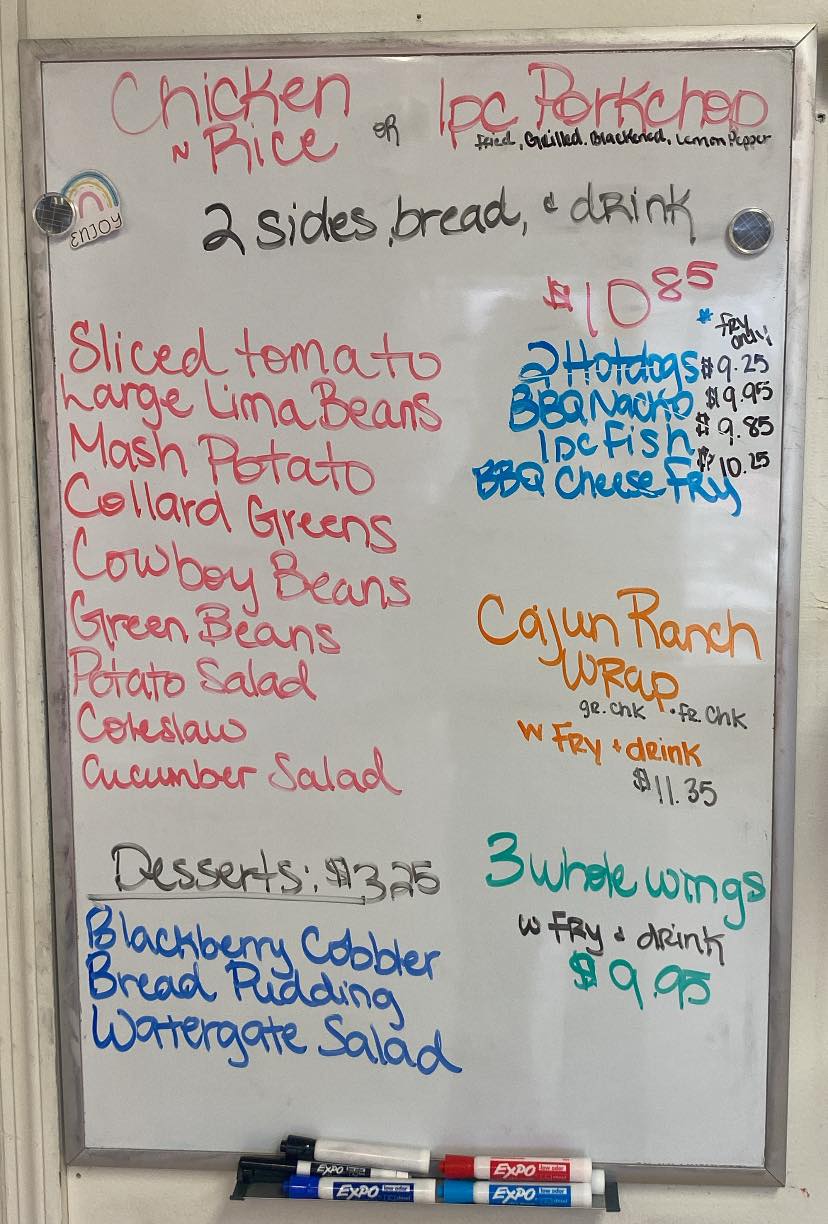 Chicken
N Rice
OR
1pc Porkchop
Fried, Grilled, Blackened, Lemon Pepper
ENJOY
2 sides, bread, & drink
$10.85
Sliced tomato
Large Lima Beans
Mash Potato
Collard Greens
Cowboy Beans
Green Beans
Potato Salad
Coleslaw
Cucumber Salad
* Fry only!
2 Hotdogs $9.25
BBQ Nacho $9.95
1pc Fish $9.85
BBQ Cheese Fry $10.25
Cajun Ranch
WRap
gr. chk • fr. chk
w Fry + drink
$11.35
Desserts: $3.25
Blackberry Cobbler
Bread Pudding
Watergate Salad
3 whole wings
w Fry & drink
$9.95
EXPO
EXPO low odor
EXPO low odor
EXPO low odor